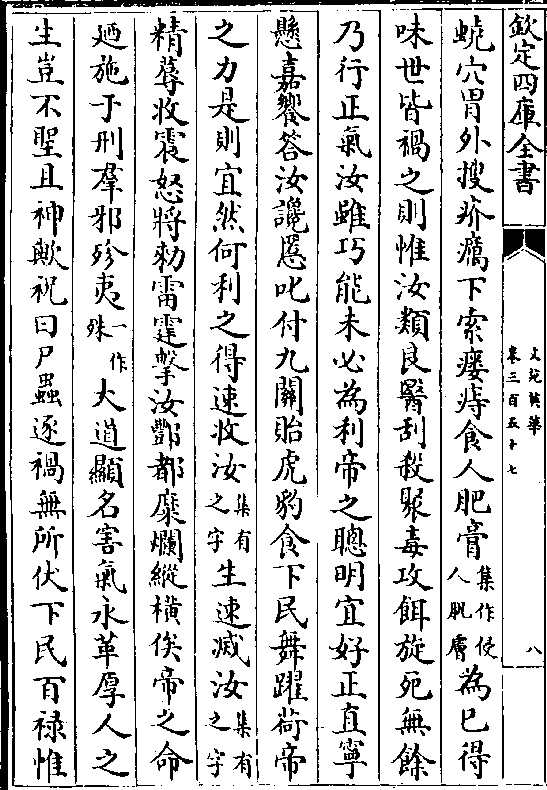 欽定四庫全書
文苑英華
卷三百五十七
八
蟯穴胃外搜疥癘下索瘻痔食人肥膏集作侵人肌膚為已得
味世皆禍之則惟汝類良醫刮殺聚毒攻餌旋死無餘
乃行正氣汝雖巧能未必為利帝之聰明宜好正直寧
懸嘉饗答汝讒慝叱付九關貽虎豹食下民舞躍荷帝
之力是則宜然何利之得速收汝集有之字生速滅汝集有之字
精蓐收震怒將勑雷霆擊汝酆都糜爛縱橫俟帝之命
廼施于刑羣邪殄夷一作殊大道顯名害氣永革厚人之
生豈不聖且神歟祝曰尸蟲逐禍無所伏下民百祿惟